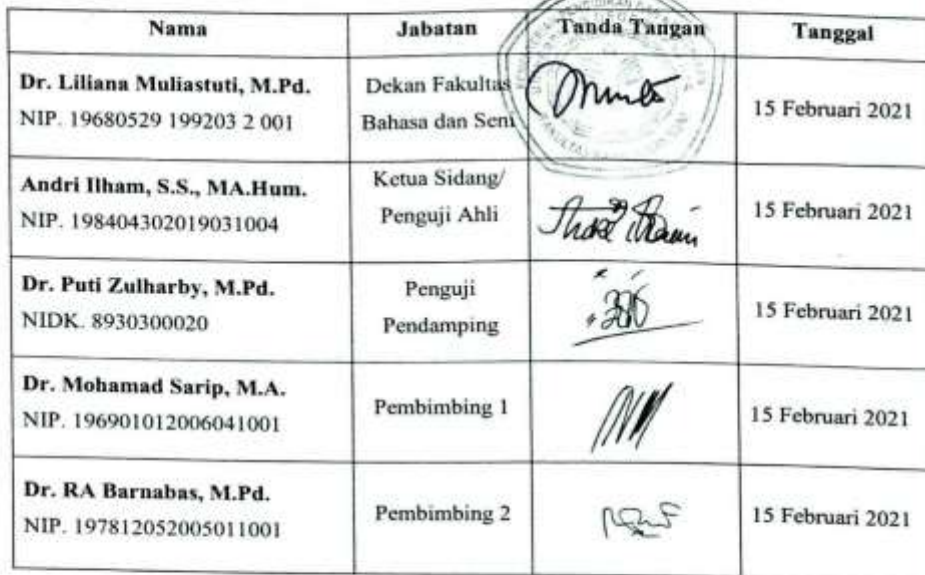 Nama Jabatan Tanda Tangan Tanggal
Dr. Liliana Muliastuti, M.Pd.
NIP. 19680529 199203 2 001
Dekan Fakultas
Bahasa dan Seni
15 Februari 2021
Andri Ilham, S.S., MA.Hum.
NIP. 198404302019031004
Ketua Sidang/
Penguji Ahli
15 Februari 2021
Dr. Puti Zulharby, M.Pd.
NIDK. 8930300020
Penguji
Pendamping
15 Februari 2021
Dr. Mohamad Sarip, M.A.
NIP. 196901012006041001
Pembimbing 1
15 Februari 2021
Dr. RA Barnabas, M.Pd.
NIP. 197812052005011001
Pembimbing 2
15 Februari 2021